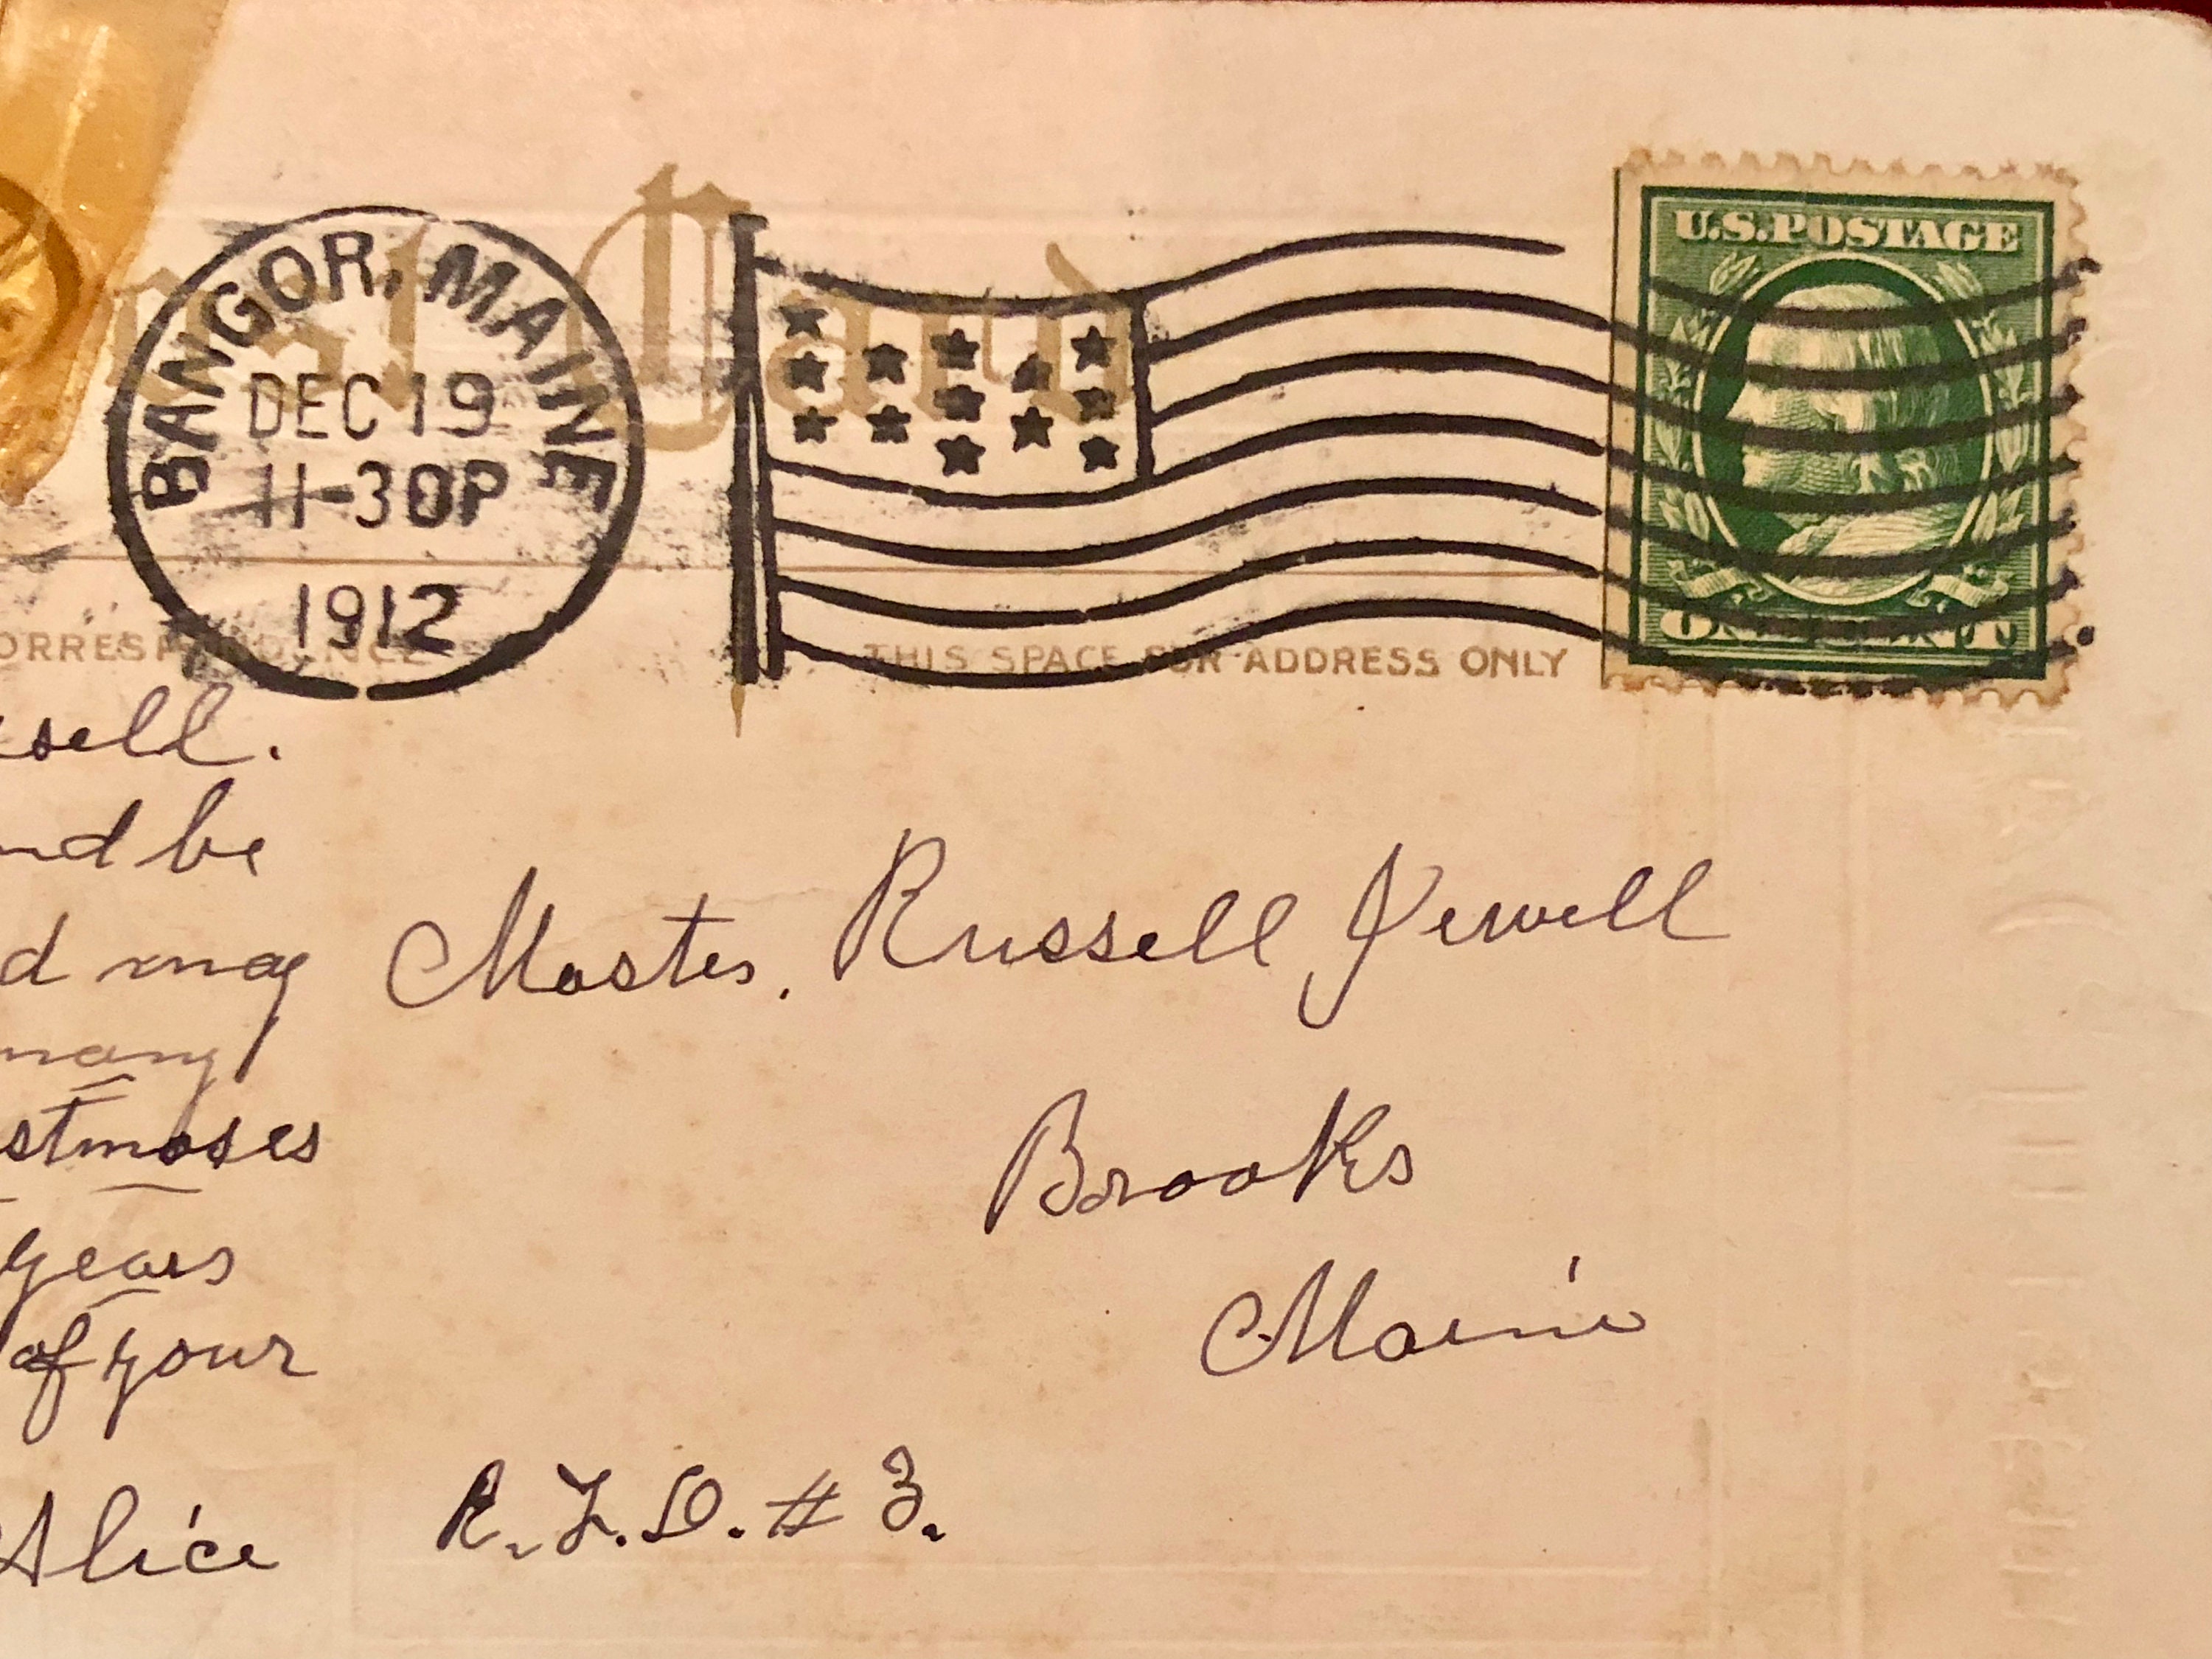 Post Card
BANGOR, MAINE
DEC 19
11-30P
1912
U.S. POSTAGE
ONE CENT.
CORRESPONDENCE
THIS SPACE FOR ADDRESS ONLY
ssell.
nd be
d may
many
stmases
years
of your
Alice
Master. Russell Jewell
Brooks
Maine
R.F.D. # 3.